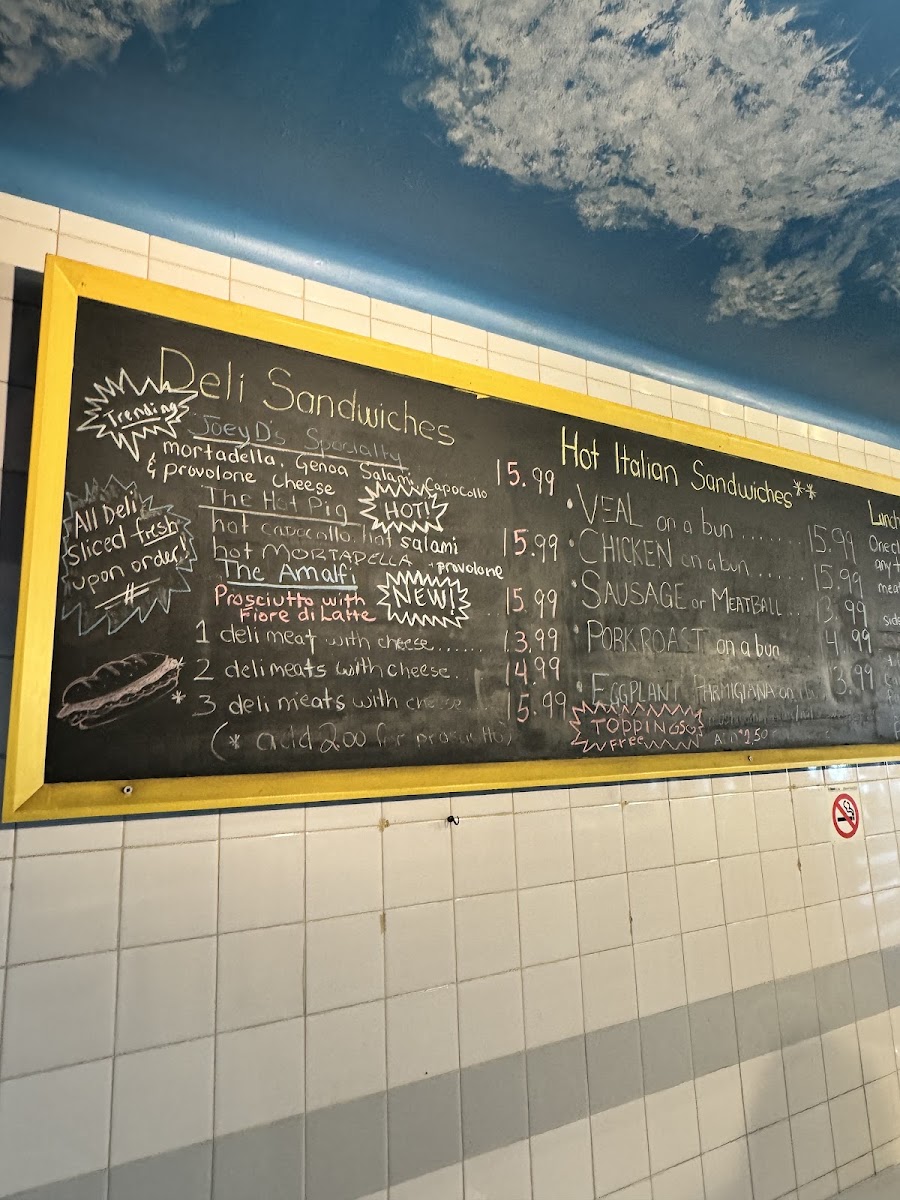 Deli Sandwiches
Trending
Joey D's Specialty
mortadella, Genoa Salami, Capocollo
& provolone cheese 15.99
The Hot Pig
HOT!
hot capocollo, hot salami 15.99
hot MORTADELLA + provolone
The Amalfi
NEW!
Prosciutto with 15.99
Fiore di Latte
1 deli meat with cheese...... 13.99
2 deli meats with cheese. 14.99
* 3 deli meats with cheese 15.99
(* add 2.00 for prosciutto)
All Deli
sliced fresh
upon order!
Hot Italian Sandwiches**
• VEAL on a bun ....... 15.99
• CHICKEN on a bun ...... 15.99
• SAUSAGE or MEATBALL.. 13.99
• PORK ROAST on a bun 14.99
• EGGPLANT PARMIGIANA on 13.99
TOPPINGS
Free
Lunch
any
meat